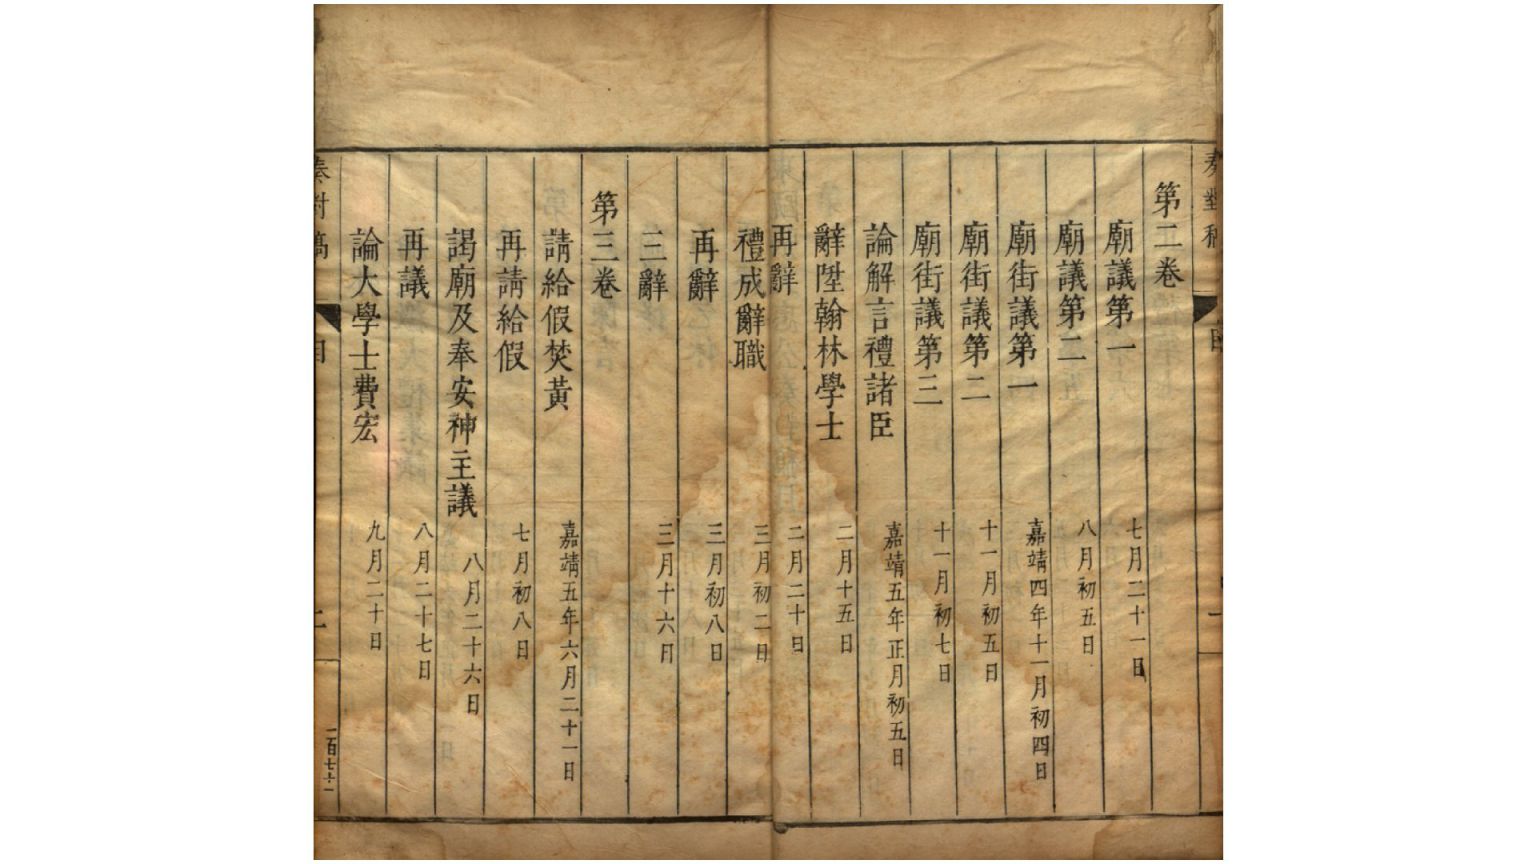 第二卷
廟議第一 七月二十一日
廟議第二 八月初五日
廟街議第一 嘉靖四年十一月初四日
廟街議第二 十一月初五日
廟街議第三 十一月初七日
論解言禮諸臣 嘉靖五年正月初五日
辭陞翰林學士 二月十五日
再辭 二月二十日
禮成辭職 三月初二日
再辭 三月初八日
三辭 三月十六日
第三卷
請給假焚黃 嘉靖五年六月二十一日
再請給假 七月初八日
謁廟及奉安神主議 八月二十六日
再議 八月二十七日
論大學士費宏 九月二十日
奏對稿 目 二 一百七十一